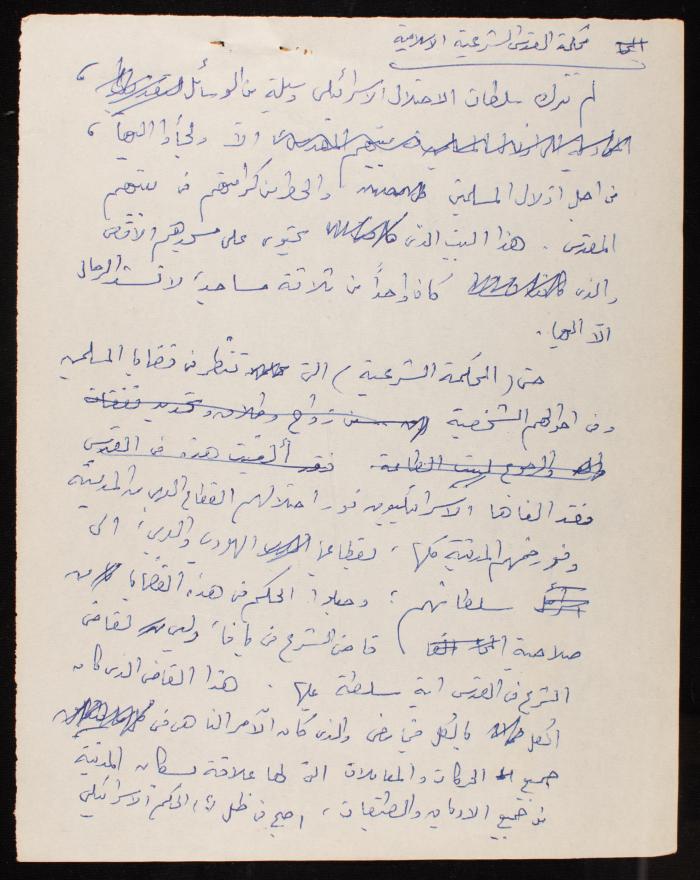 محكمة القدس الشرعية الاسلامية
لم تترك سلطات الاحتلال الاسرائيلي وسيلة من الوسائل
الا ولجأوا اليها،
من اجل اذلال المسلمين والحط من كرامتهم في بيتهم
المقدس. هذا البيت الذي يحتوي على مسجدهم الأقصى
والذي كان واحداً من ثلاثة مساجد لا تشد الرحال
الا اليها.
حتى (المحكمة الشرعية) التي تنظر في قضايا المسلمين
وفي احوالهم الشخصية من زواج وطلاق وتحديد نفقات
والرجوع لبيت الطاعة. فقد ألغيت هذه في القدس
فقد الغاها الاسرائيليون فور احتلالهم القطاع العربي من المدينة
وفور ضمهم المدينة كلها، بقطاعيها اليهودي والعربي، الى
سلطاتهم؛ وجعلوا الحكم في هذه القضايا من
صلاحية قاضي الشرع في يافا، وليس لقاضي
الشرع في القدس اية سلطة عليها. هذا القاضي الذي كان
الكل بالكل فيما مضى والذي كان الآمر الناهي في
جميع الحركات والمعاملات التي لها علاقة بسكان المدينة
من جميع الاديان والطبقات، اصبح في ظل الحكم الاسرائيلي